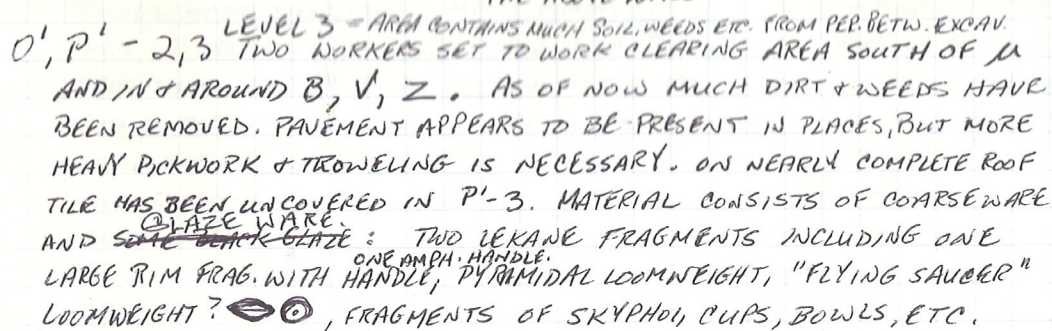 LEVEL 3 = AREA CONTAINS MUCH SOIL, WEEDS ETC. FROM PER. BETW. EXCAV.
O', P' - 2,3 TWO WORKERS SET TO WORK CLEARING AREA SOUTH OF μ
AND IN & AROUND B, V, Z. AS OF NOW MUCH DIRT & WEEDS HAVE
BEEN REMOVED. PAVEMENT APPEARS TO BE PRESENT IN PLACES, BUT MORE
HEAVY PICKWORK & TROWELING IS NECESSARY. ON NEARLY COMPLETE ROOF
TILE HAS BEEN UNCOVERED IN P'-3. MATERIAL CONSISTS OF COARSE WARE
GLAZE WARE.
AND SOME BLACK GLAZE : TWO LEKANE FRAGMENTS INCLUDING ONE
ONE AMPH. HANDLE.
LARGE RIM FRAG. WITH HANDLE, PYRAMIDAL LOOMWEIGHT, "FLYING SAUCER"
LOOMWEIGHT? , FRAGMENTS OF SKYPHOI, CUPS, BOWLS, ETC.